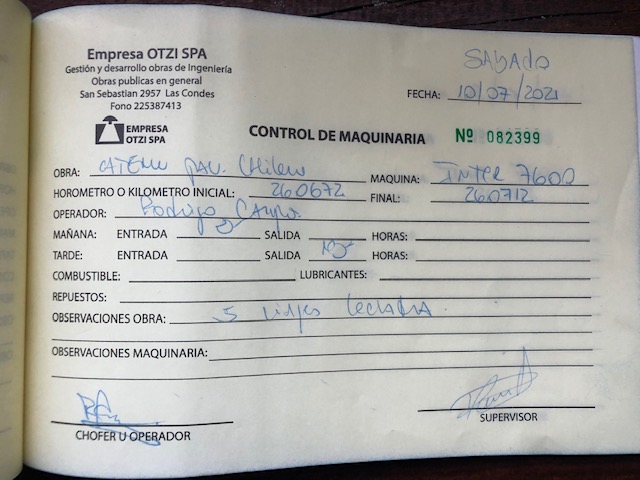 Empresa OTZI SPA
Gestión y desarrollo obras de Ingeniería
Obras publicas en general
San Sebastian 2957 Las Condes
Fono 225387413
SABADO
FECHA: 10/07/2021
EMPRESA
OTZI SPA
CONTROL DE MAQUINARIA Nº 082399
OBRA: Chileno MAQUINA: INTER 7600
HOROMETRO O KILOMETRO INICIAL: 260672 FINAL: 260712
OPERADOR: Rodrigo Campos
MAÑANA: ENTRADA SALIDA HORAS:
TARDE: ENTRADA SALIDA HORAS:
COMBUSTIBLE: LUBRICANTES:
REPUESTOS:
OBSERVACIONES OBRA: 5 viajes lechada.
OBSERVACIONES MAQUINARIA:
CHOFER U OPERADOR
SUPERVISOR